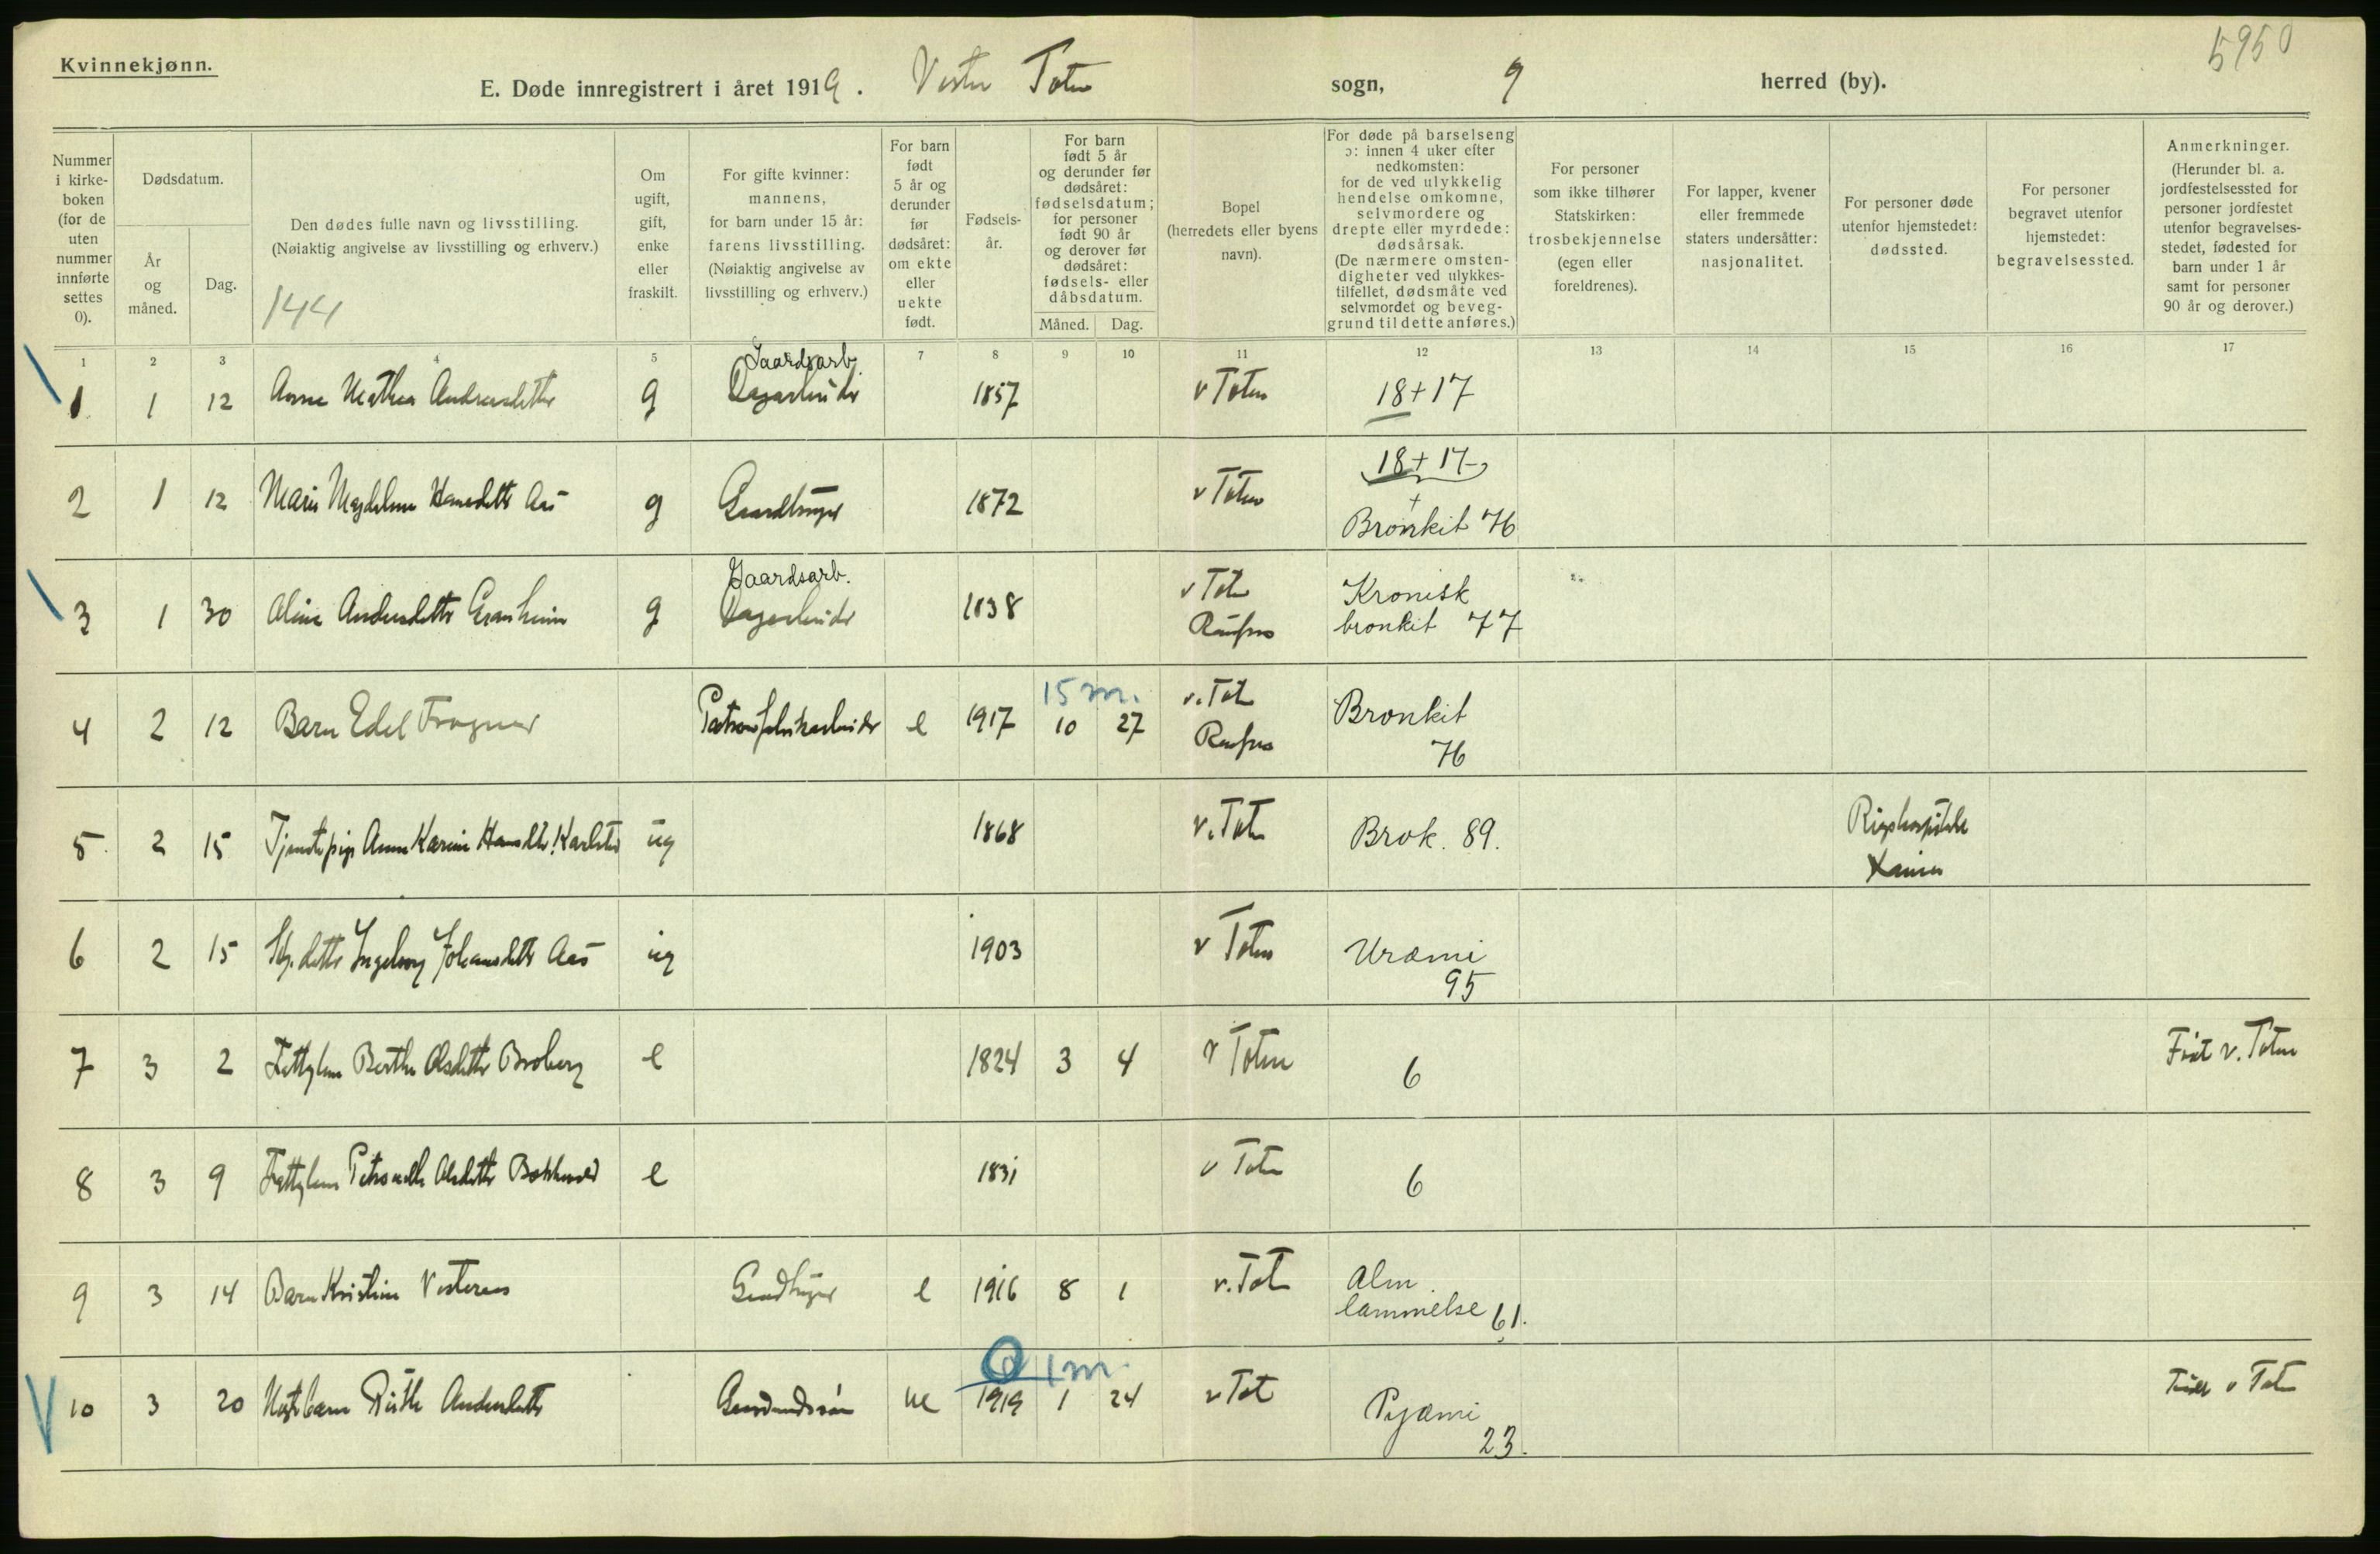 Kvinnekjønn.
5950
E. Døde innregistrert i året 1919. Vester Toten sogn, 9 herred (by).
Nummer i kirkeboken (for de uten nummer innførte settes 0).
Dødsdatum.
År og måned.
Dag.
Den dødes fulle navn og livsstilling.
(Nøiaktig angivelse av livsstilling og erhverv.)
144
Om ugift, gift, enke eller fraskilt.
For gifte kvinner: mannens, for barn under 15 år: farens livsstilling. (Nøiaktig angivelse av livsstilling og erhverv.)
For barn født 5 år og derunder før dødsåret: om ekte eller uekte født.
Fødselsår.
For barn født 5 år og derunder før dødsåret: fødselsdatum; for personer født 90 år og derover før dødsåret: fødsels- eller dåbsdatum.
Måned. Dag.
Bopel (herredets eller byens navn).
For døde på barselseng ɔ: innen 4 uker efter nedkomsten: for de ved ulykkelig hendelse omkomne, selvmordere og drepte eller myrdede: dødsårsak. (De nærmere omstendigheter ved ulykkestilfellet, dødsmåte ved selvmordet og beveggrund til dette anføres.)
For personer som ikke tilhører Statskirken: trosbekjennelse (egen eller foreldrenes).
For lapper, kvener eller fremmede staters undersåtter: nasjonalitet.
For personer døde utenfor hjemstedet: dødssted.
For personer begravet utenfor hjemstedet: begravelsessted.
Anmerkninger. (Herunder bl. a. jordfestelsessted for personer jordfestet utenfor begravelsesstedet, fødested for barn under 1 år samt for personer 90 år og derover.)
1 2 3 4 5 7 8 9 10 11 12 13 14 15 16 17
Gaardsarb.
1 1 12 Anne Mathea Andreasdatter g Dagarbeider 1857 v Toten 18+17
2 1 12 Marie Magdelene Hansdatter Aas g Gaardbruger 1872 v Toten 18+17
+
Bronkit 76
Gaardsarb.
3 1 30 Oline Andersdatter Granheim g Dagarbeider 1838 v Toten Raufoss Kronisk
bronkit 77
15 m.
4 2 12 Barn Edel Frogner Patronfabrikarbeider e 1917 10 27 v. Tot Raufoss Bronkit
76
5 2 15 Tjenestepige Anne Karine Hansdtr. Karlstad ug 1868 v. Toten Brok. 89. Rigshospitalet
Kristiania
6 2 15 datter Ingeborg Johansdatter Aas ug 1903 v Toten Uræmi
95
7 3 2 Fattiglem Berthe Olsdatter Broberg e 1824 3 4 v Toten 6 Født v. Toten
8 3 9 Fattiglem Petronelle Olsdatter e 1831 v Toten 6
9 3 14 Barn Kristine Vesteraas Gaardbruger e 1916 8 1 v. Tot Alm.
lammelse 61.
0 1 m.
10 3 20 Ruth Andersdatter ue 1919 1 24 v Tot Pyæmi
23. v Toten